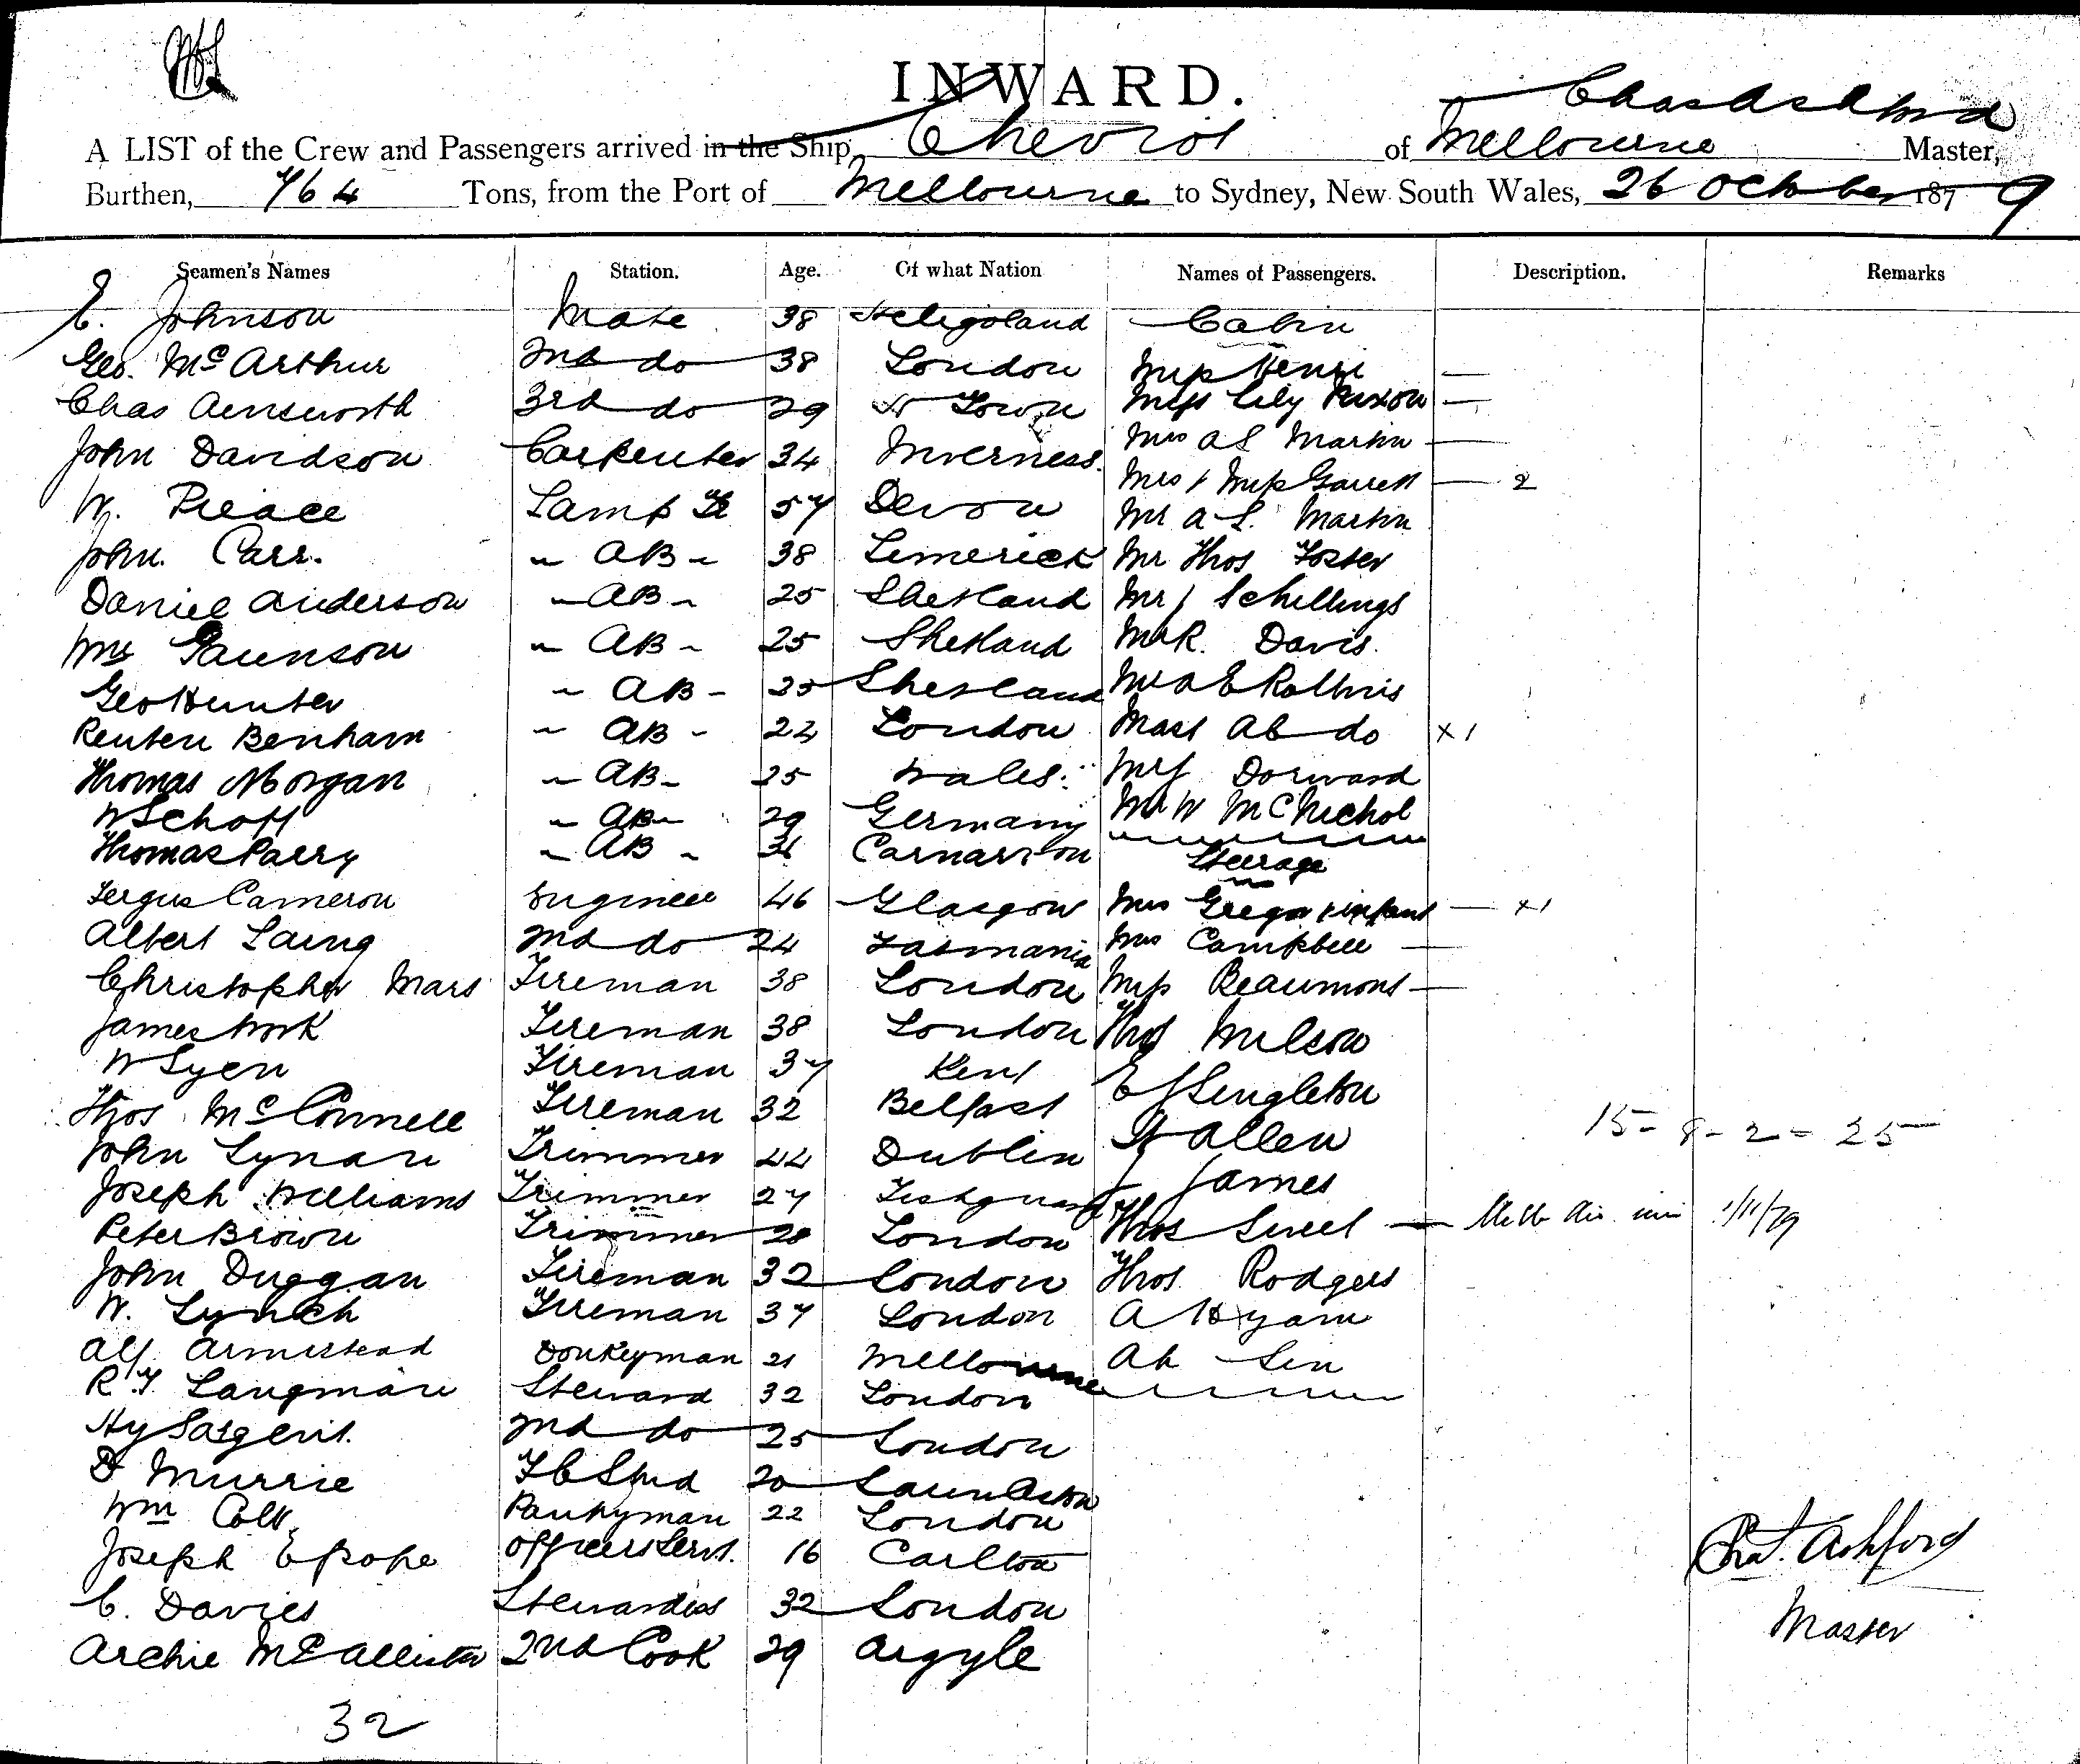 INWARD.
Chas Ashford
A LIST of the Crew and Passengers arrived in the Ship Cheviot of Melbourne Master,
Burthen, 764 Tons, from the Port of Melbourne to Sydney, New South Wales, 26 October 1879
Seamen's Names Station. Age. Of what Nation Names of Passengers. Description. Remarks
E. Johnson Mate 38 Heligoland Cabin
Geo. McArthur 2nd do 38 London Miss Henri —
Chas Ainsworth 3rd do 29 Town Miss Lily —
John Davidson Carpenter 34 Inverness Mrs A S Martin —
W. Peace Lamp Tr 57 Devon Mrs & Miss Garrett — 2
John Carr. " AB " 38 Limerick Mr A. S. Martin
Daniel Anderson " AB " 25 Shetland Mr Thos Foster
Wm Gaunson " AB " 25 Shetland Mr J Schillings
Geo Hunter " AB " 25 Shetland Mr R. Davis.
Reuben Benham " AB " 22 London Mr A E Rollins
Thomas Morgan " AB " 25 Wales Mast Ab do x 1
W Schoff " AB " 29 Germany Mr J Dorward
Thomas Parry " AB " Carnarvon Mr W McNichol
Steerage
Fergus Cameron Engineer 46 Glasgow Mrs Gregor & infant — x1
Albert Laing 2nd do 24 Tasmania Mrs Campbell —
Christopher Mars Fireman 38 London Miss Beaumont —
James Work Fireman 38 London Thos Wilson
W Syen Fireman 37 Kent E J Singleton
Thos McConnell Fireman 32 Belfast H Allen 15 - 8 - 2 = 25
John Lynan Trimmer 44 Dublin J James
Joseph Williams Trimmer 27 Thos Sweet — 1/11/79
Peter Brown Trimmer 28 London Thos Rodgers
John Duggan Fireman 32 London A Hyam
W. Lynch Fireman 37 London Ah Sin
Alf. Armistead Donkeyman 21 Melbourne
R. T. Langmaid Steward 32 London
Hy Sargent. 2nd do 25 London
D Murrie F C Stwd 20 Launceston
Wm Colt Pantryman 22 London
Joseph E Pope Officers Servt. 16 Carlton
C. Davies Stewardess 32 London
Archie McCallister 2nd Cook 29 Argyle
Chas. Ashford
Master
32